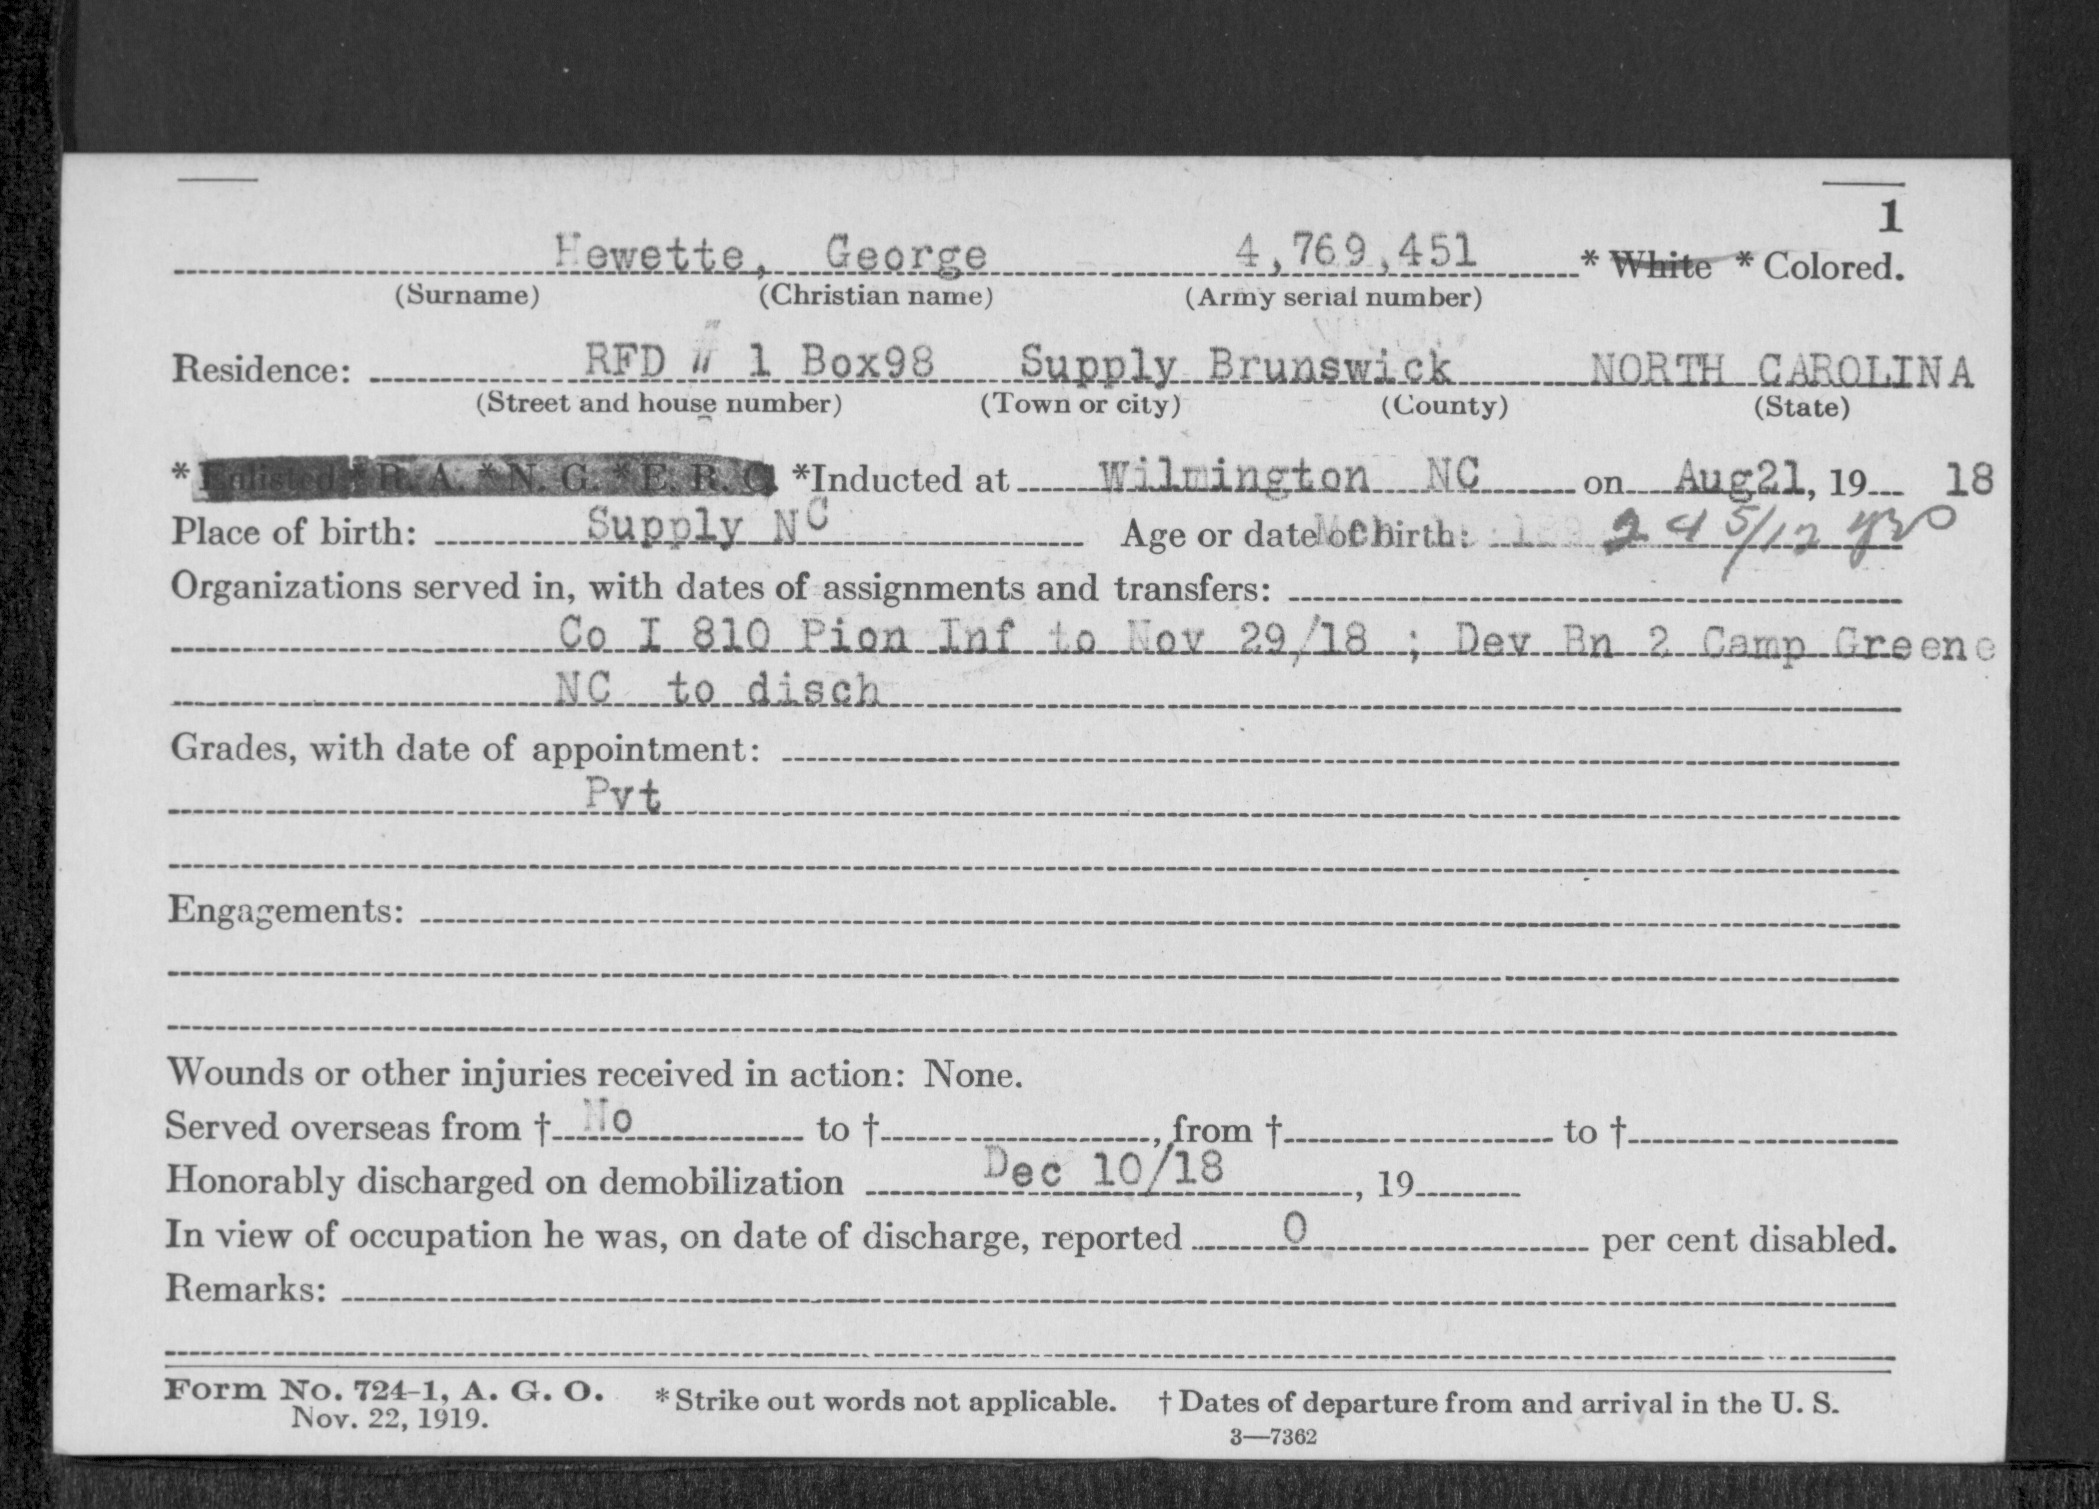 1
Hewette, George 4,769,451 * White * Colored.
(Surname) (Christian name) (Army serial number)
Residence: RFD # 1 Box98 Supply Brunswick NORTH CAROLINA
(Street and house number) (Town or city) (County) (State)
* Enlisted * R. A. * N. G. * E. R. C. *Inducted at Wilmington NC on Aug21, 19 18
Place of birth: Supply NC Age or date of birth: 24 5/12 yrs
Organizations served in, with dates of assignments and transfers:
Co I 810 Pion Inf to Nov 29/18 ; Dev Bn 2 Camp Greene
NC to disch
Grades, with date of appointment:
Pvt
Engagements:
Wounds or other injuries received in action: None.
Served overseas from † No to †, from † to †
Honorably discharged on demobilization Dec 10/18, 19
In view of occupation he was, on date of discharge, reported 0 per cent disabled.
Remarks:
Form No. 724-1, A. G. O. * Strike out words not applicable. † Dates of departure from and arrival in the U. S.
Nov. 22, 1919.
3—7362